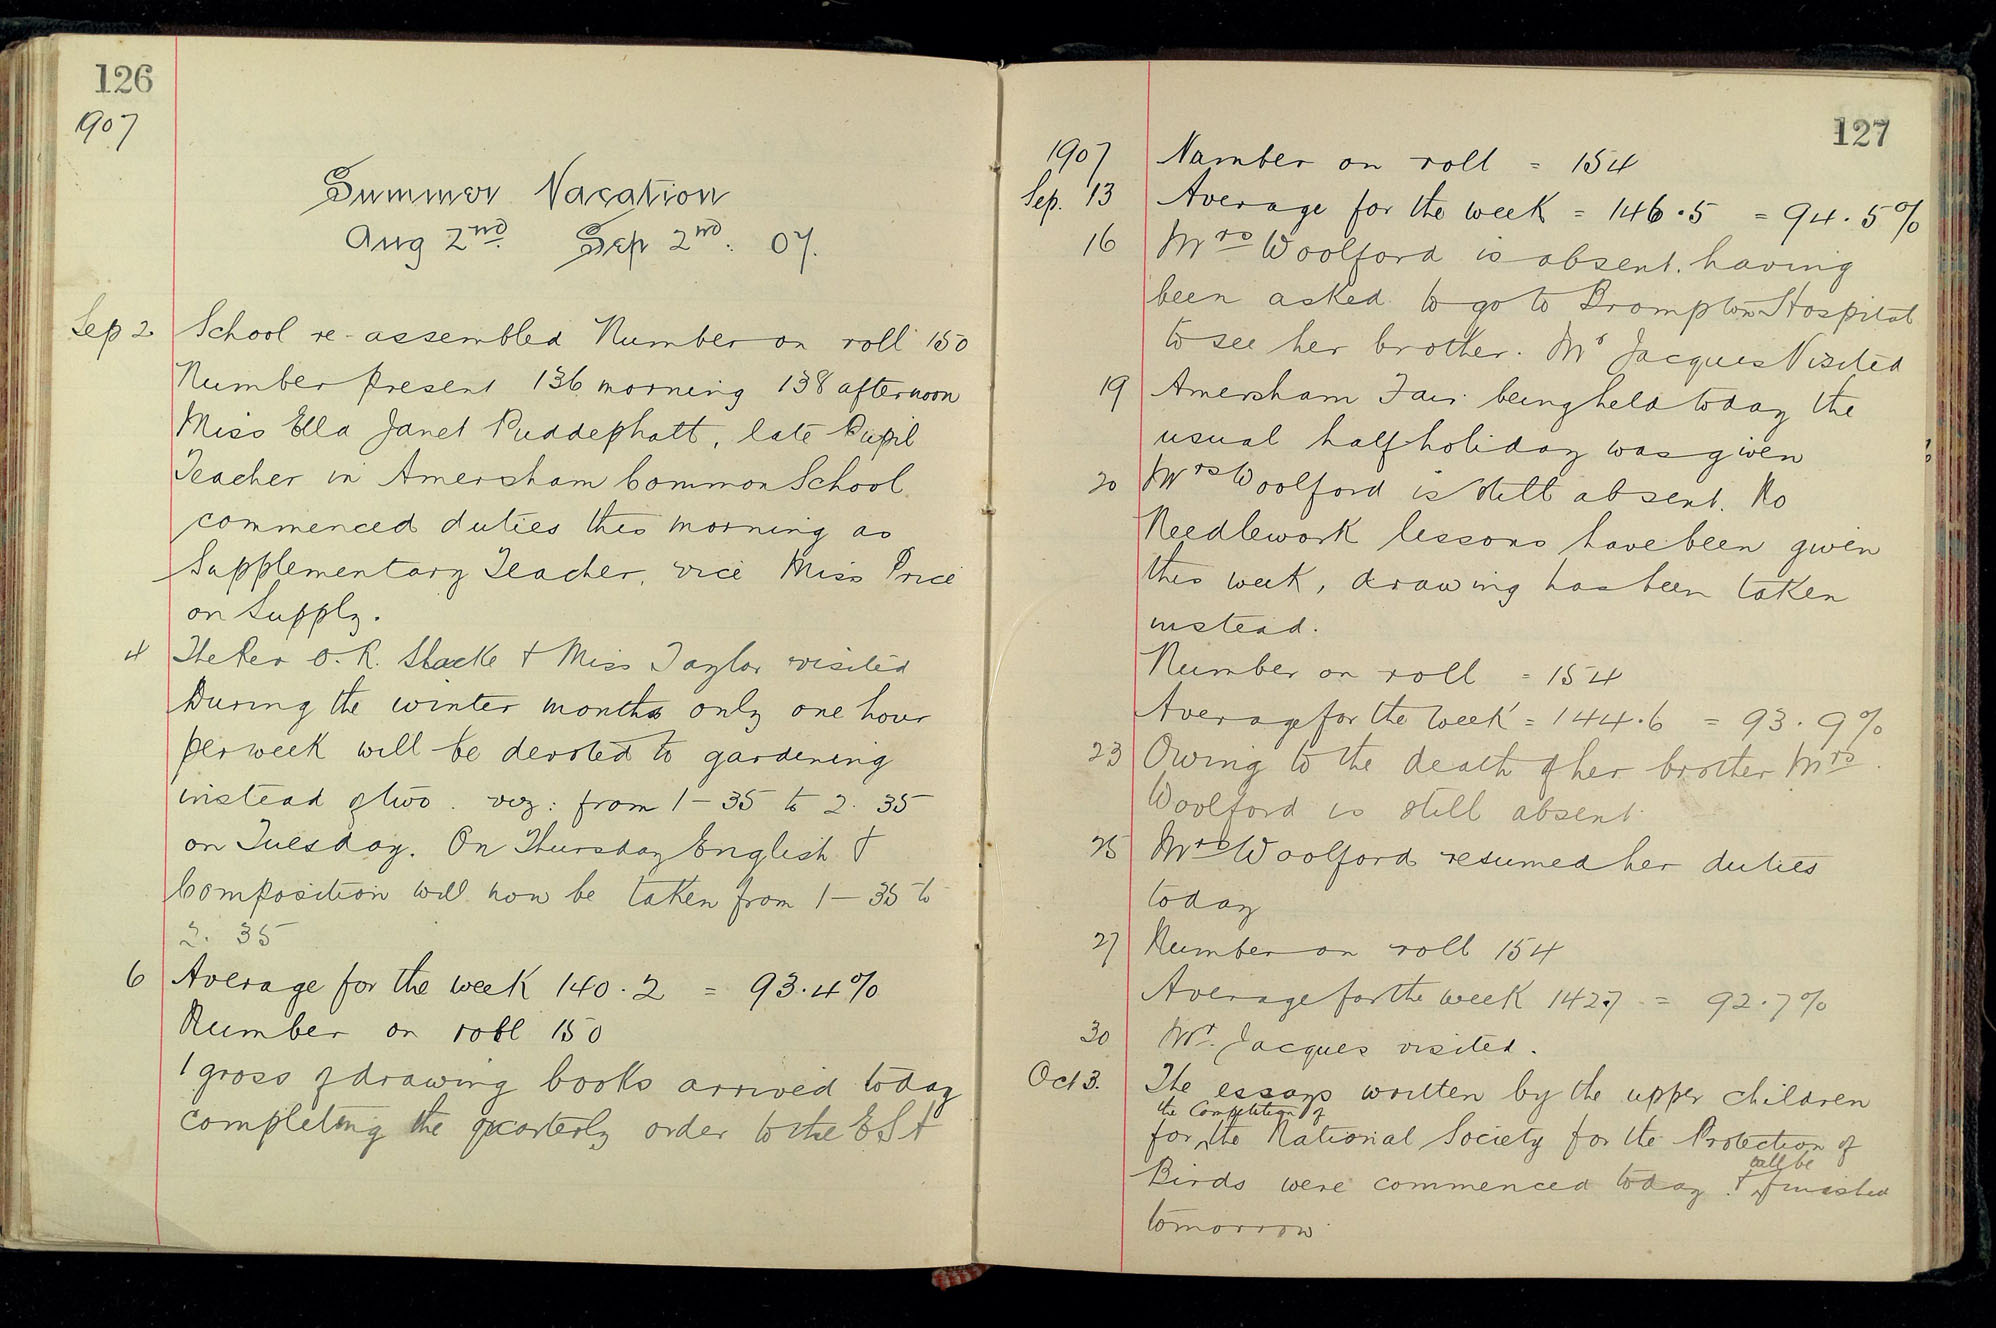 126
1907
Summer Vacation
Aug 2nd. Sep 2nd. 07.
Sep 2 School re-assembled Number on roll 150
Number present 136 morning 138 afternoon
Miss Ella Janet Puddephatt, late Pupil
Teacher in Amersham Common School
commenced duties this morning as
Supplementary Teacher, vice Miss Price
on Supply.
4 The Rev O. R. Slacke + Miss Taylor visited
During the winter months only one hour
per week will be devoted to gardening
instead of two. viz: from 1-35 to 2.35
on Tuesday. On Thursday English +
Composition will now be taken from 1-35 to
2.35
6 Average for the week 140.2 = 93.4%
Number on roll 150
1 gross of drawing books arrived today
completing the quarterly order to the E S A
127
1907 Number on roll = 154
Sep. 13 Average for the week = 146.5 = 94.5%
16 Mrs Woolford is absent. having
been asked to go to Brompton Hospital
to see her brother. Mr Jacques Visited
19 Amersham Fair being held today the
usual half holiday was given
20 Mrs Woolford is still absent. No
Needlework lessons have been given
this week, drawing has been taken
instead.
Number on roll = 154
Average for the week = 144.6 = 93.9%
23 Owing to the death of her brother Mrs.
Woolford is still absent
25 Mrs Woolford resumed her duties
today
27 Number on roll 154
Average for the week 142.7 = 92.7%
30 Mr. Jacques visited.
Oct 3. The essays written by the upper children
the Competition of
for the National Society for the Protection of
will be
Birds were commenced today. + finished
tomorrow